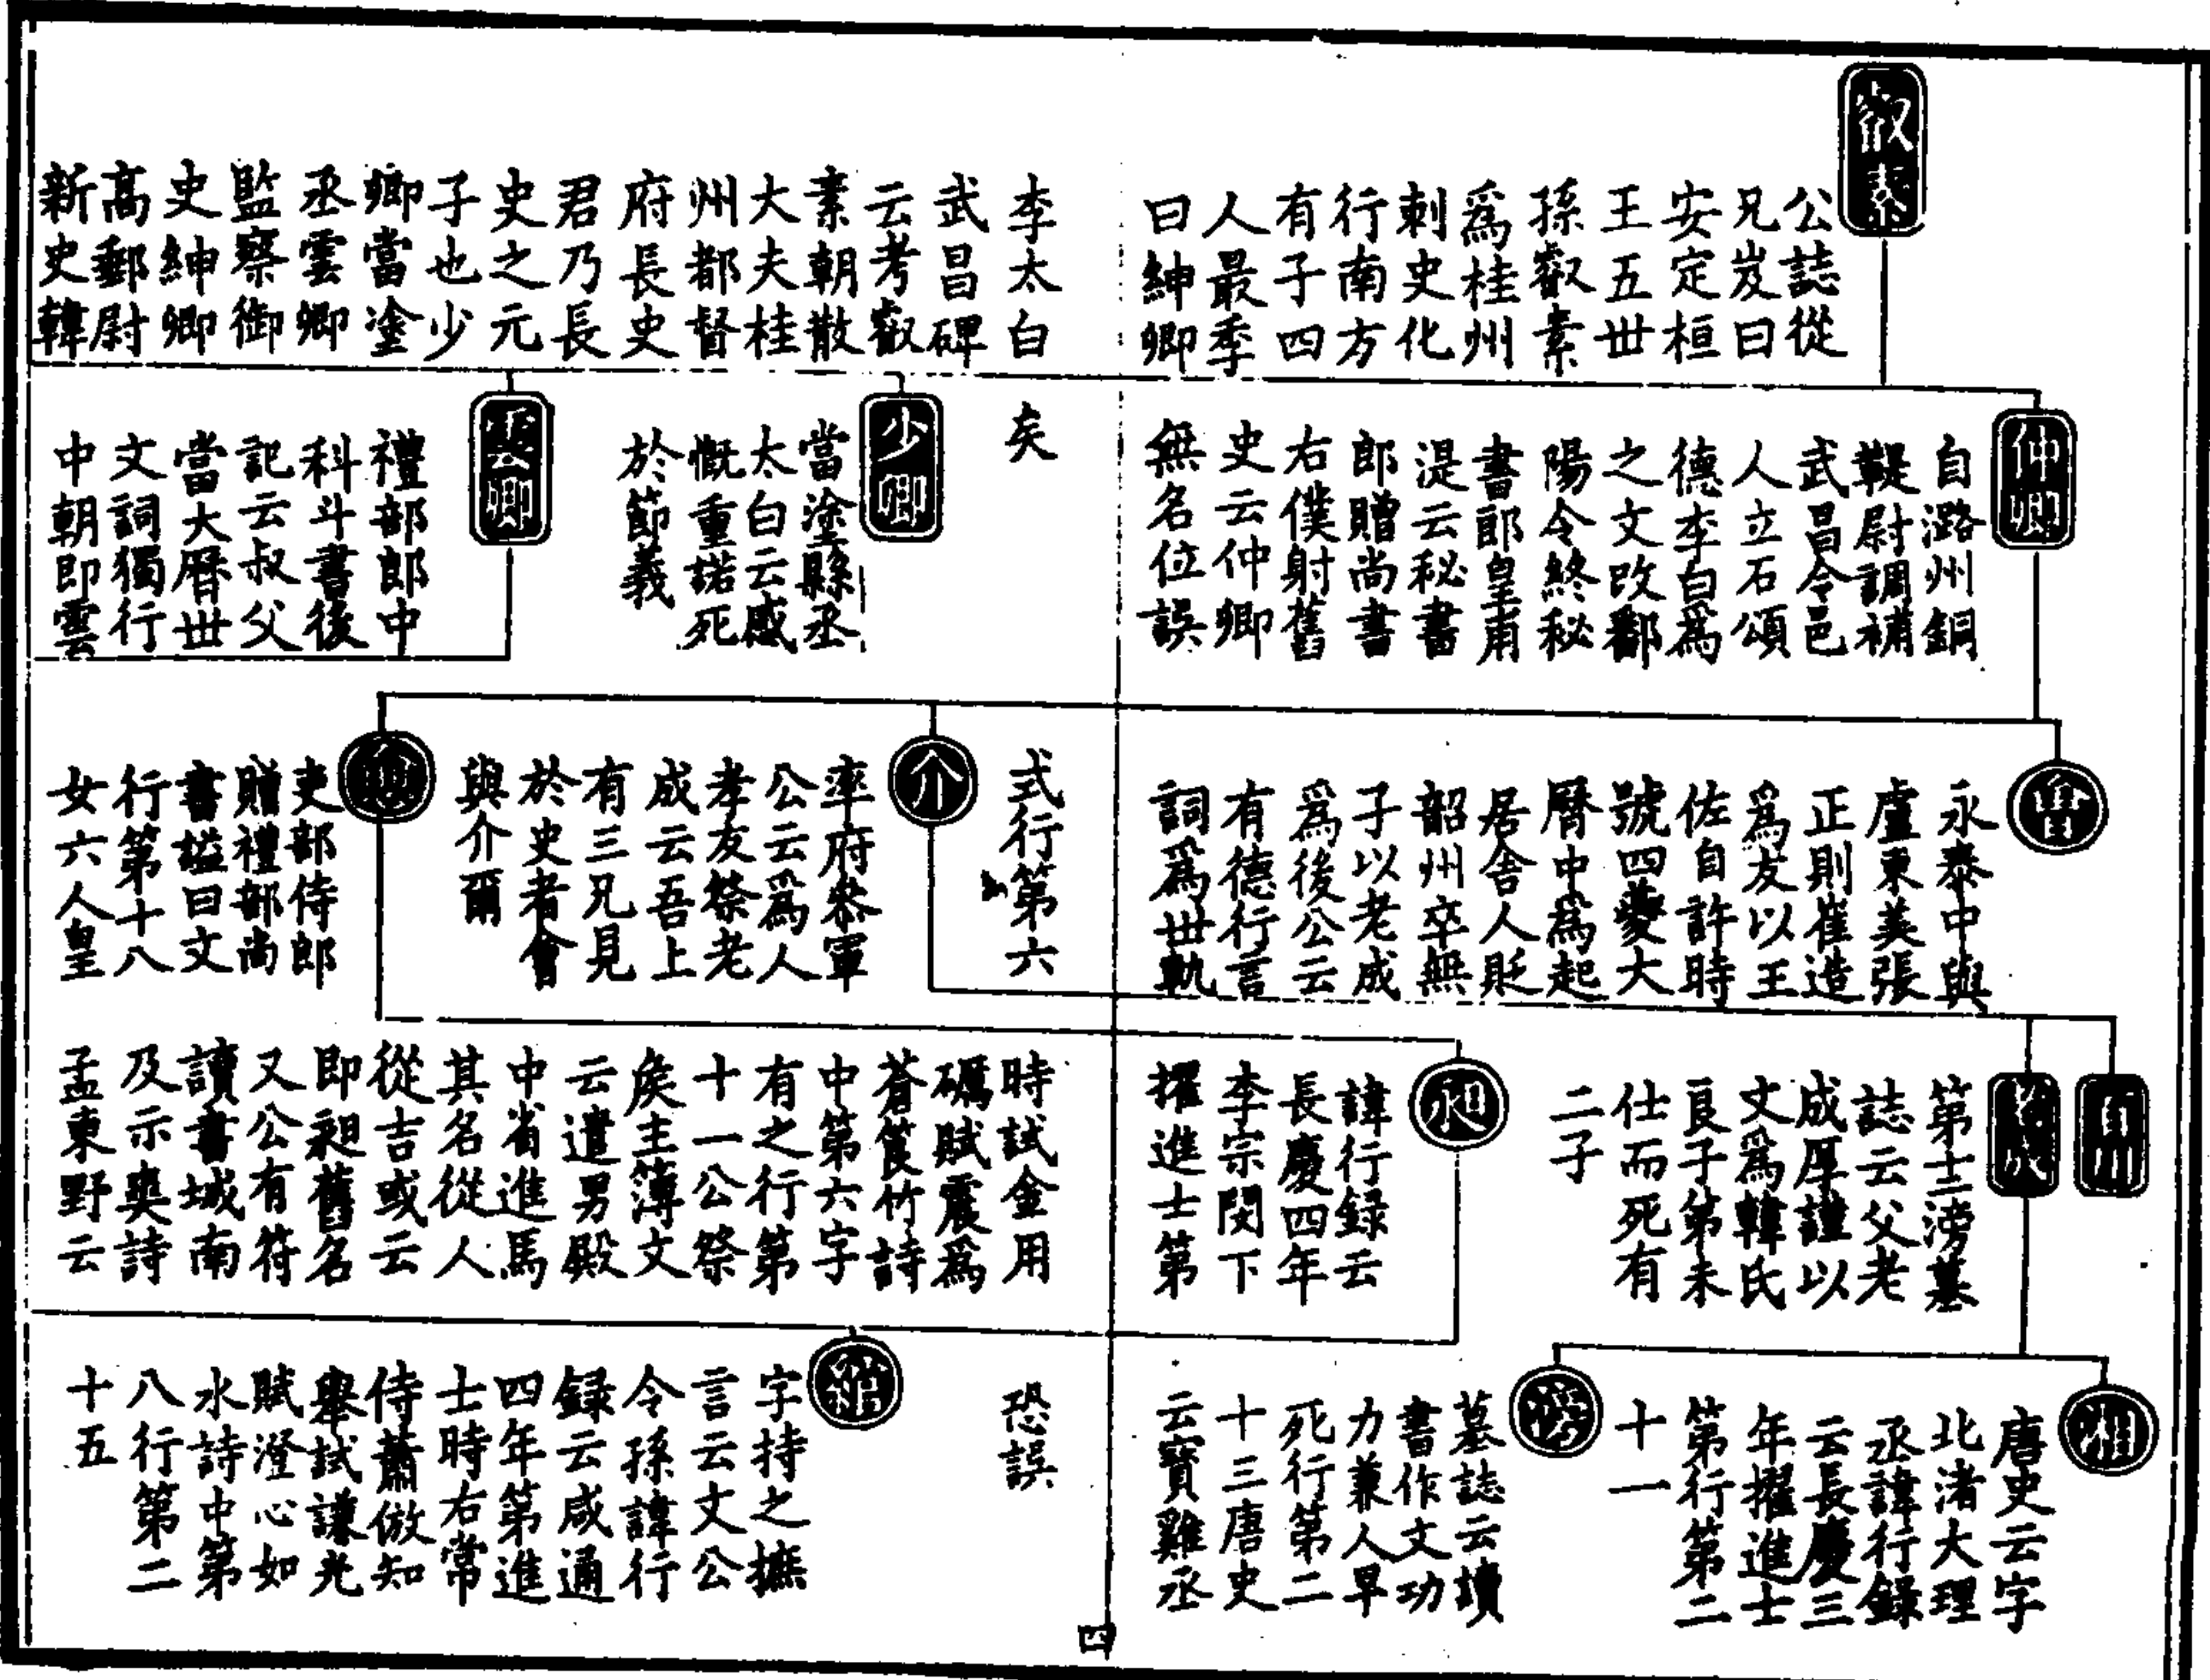 叡素
公誌從
兄岌曰
安定桓
王五世
孫叡素
爲桂州
刺史化
行南方
有子四
人最季
曰紳卿
李太白
武昌碑
云考叡
素朝散
大夫桂
州都督
府長史
君乃長
史之元
子也少
卿當塗
丞雲卿
監察御
史紳卿
高郵尉
新史韓
仲卿
自潞州銅
鞮尉調補
武昌令邑
人立石頌
德李白爲
之文改鄱
陽令終秘
書郎皇甫
湜云秘書
郎贈尚書
右僕射舊
史云仲卿
無名位誤
矣
少卿
當塗縣丞
太白云感
慨重諾死
於節義
雲卿
禮部郎中
科斗書後
記云叔父
當大曆世
文詞獨行
中朝即雲
會
永泰中與
盧東美張
正則崔造
爲友以王
佐自許時
號四夔大
曆中爲起
居舍人貶
韶州卒無
子以老成
爲後公云
有德行言
詞爲世軌
式行第六
介
率府叅軍
公云爲人
孝友祭老
成云吾上
有三兄見
於史者會
與介爾
愈
吏部侍郎
贈禮部尚
書謚曰文
行第十八
女六人皇
百川
老成
第十二滂墓
誌云父老
成厚謹以
文爲韓氏
良子弟未
仕而死有
二子
昶
諱行録云
長慶四年
李宗閔下
擢進士第
時試金用
礪賦震爲
蒼筤竹詩
中第六字
有之行第
十一公祭
矦主簿文
云遣男殿
中省進馬
其名從人
從吉或云
即昶舊名
又公有符
讀書城南
及示爽詩
孟東野云
湘
唐史云字
北渚大理
丞諱行録
云長慶三
年擢進士
第行第二
十一
滂
墓誌云讀
書作文功
力兼人早
死行第二
十三唐史
云寶雞丞
恐誤
綰
字持之摭
言云文公
令孫諱行
録云咸通
四年第進
士時右常
侍蕭倣知
舉試謙光
賦澄心如
水詩中第
八行第二
十五
四